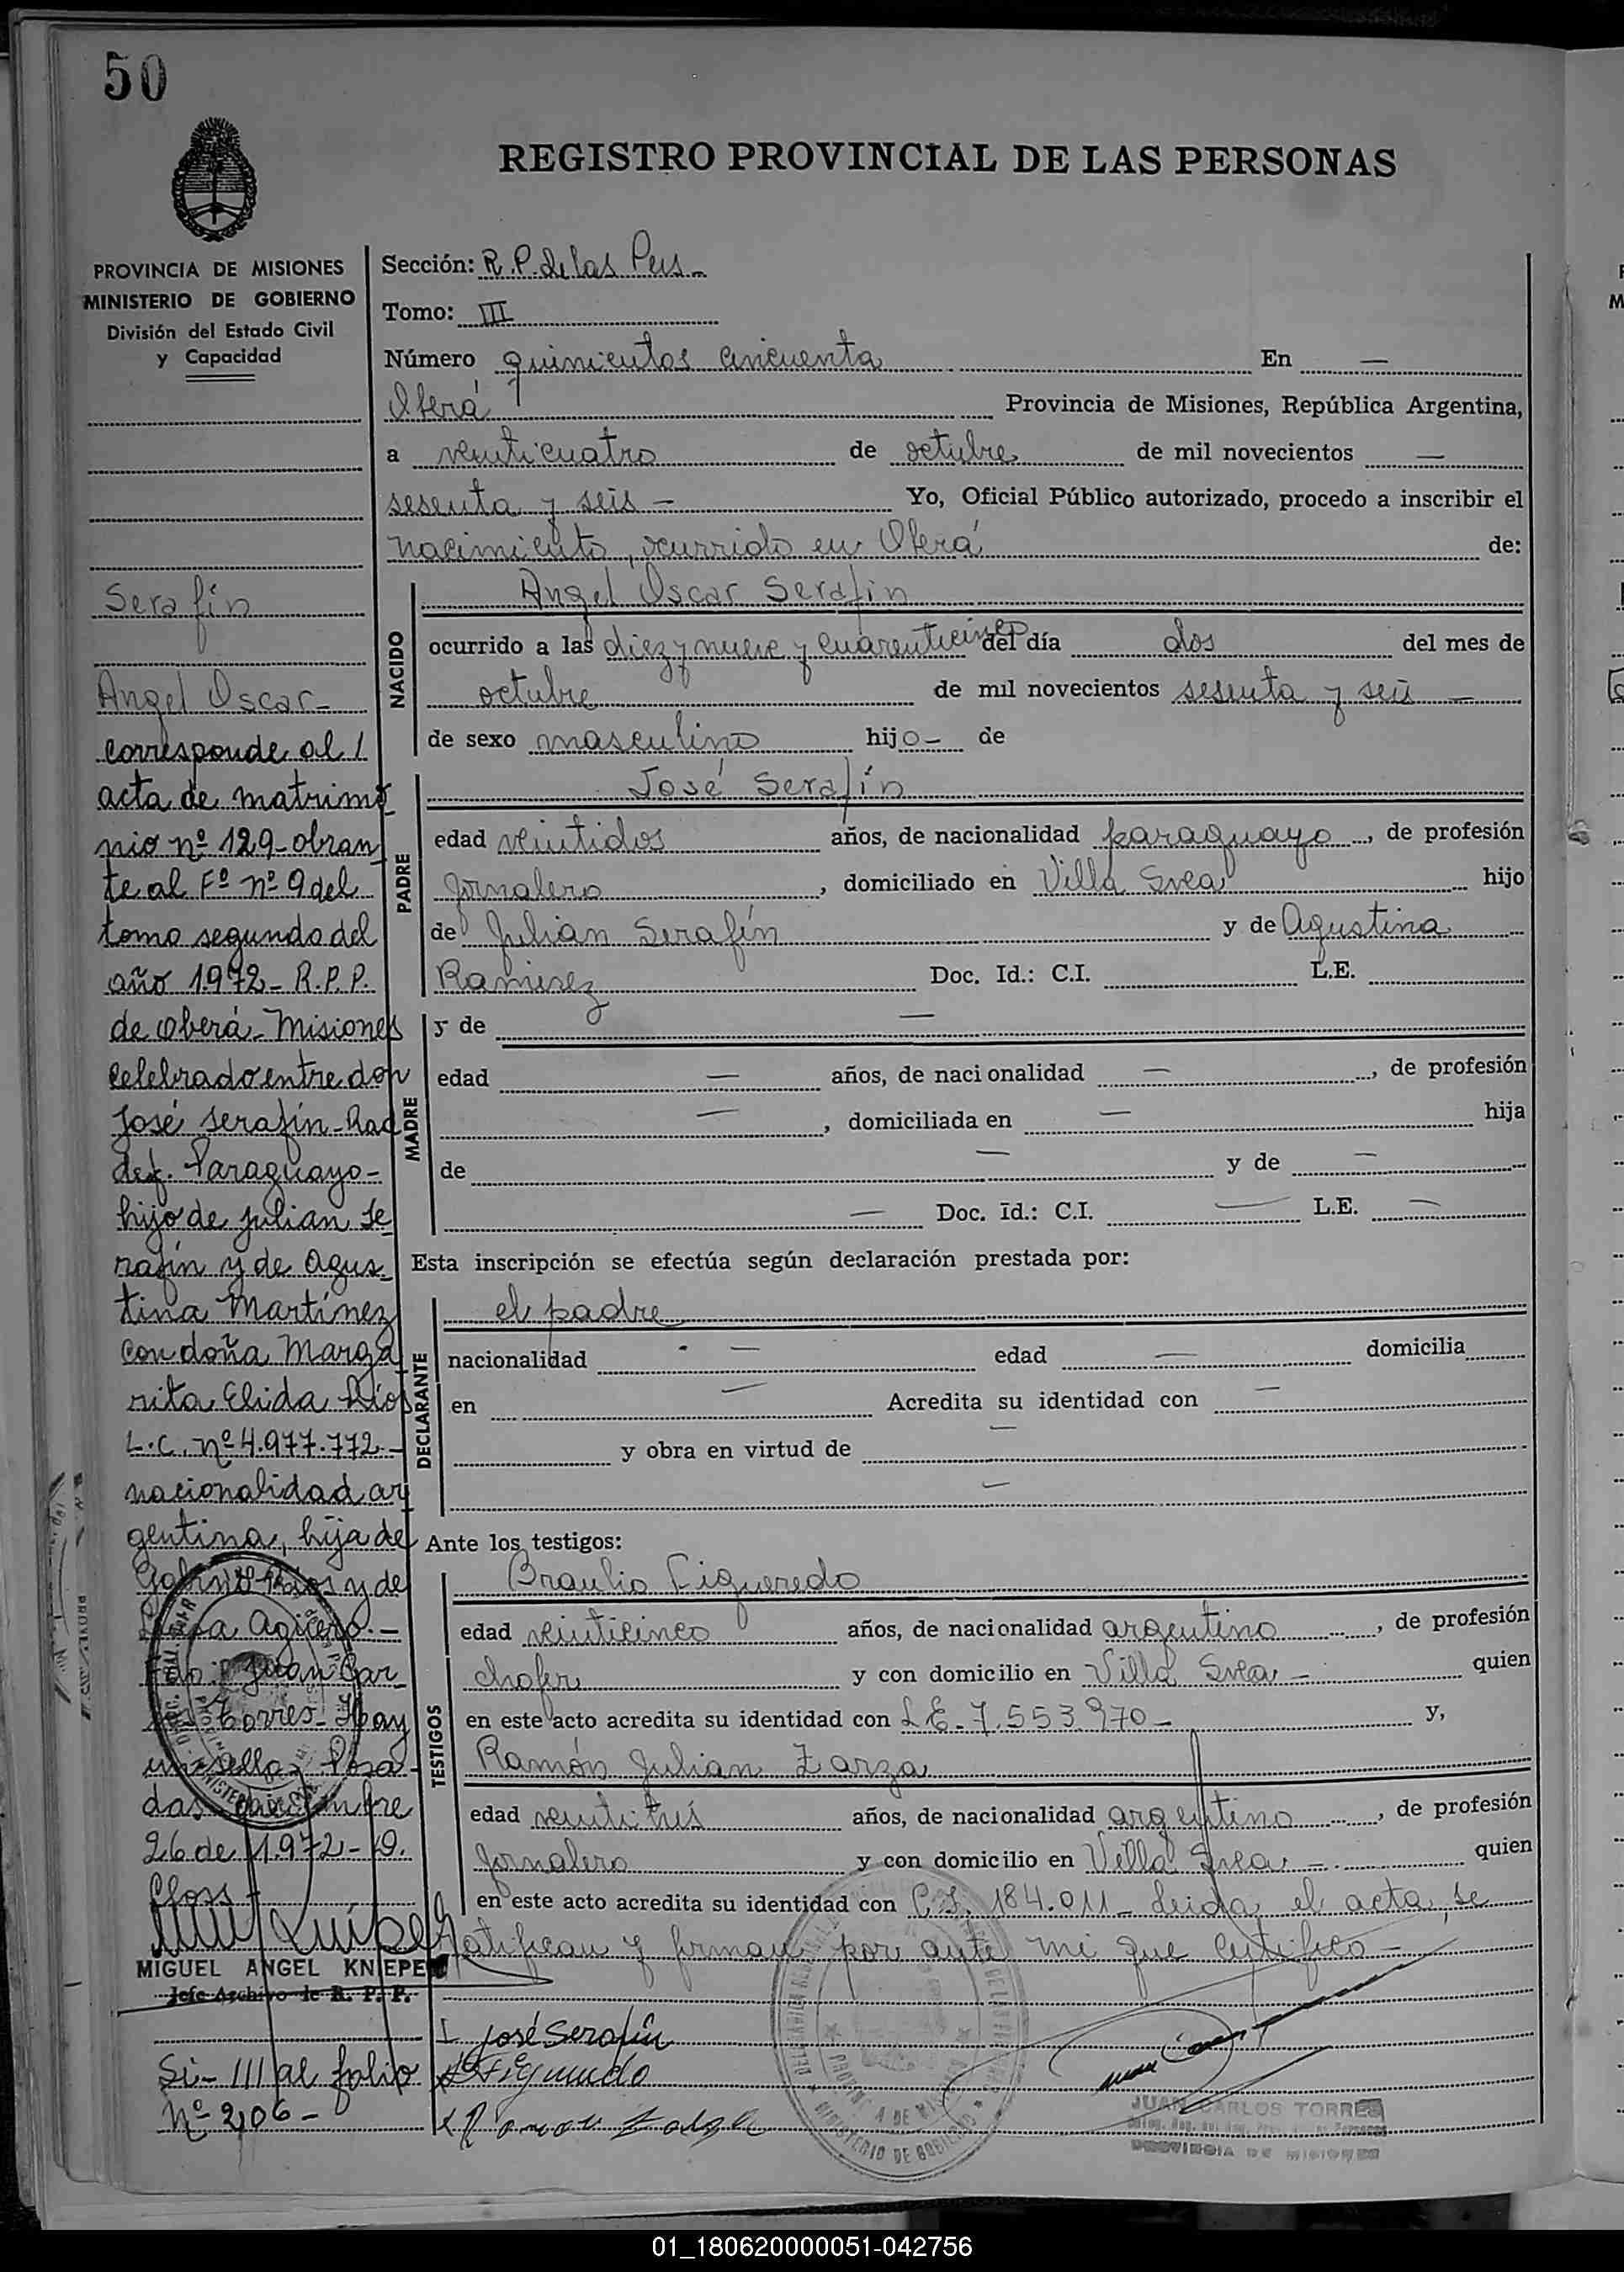 50
REGISTRO PROVINCIAL DE LAS PERSONAS
PROVINCIA DE MISIONES
MINISTERIO DE GOBIERNO
División del Estado Civil
y Capacidad
Serafín
Angel Oscar-
corresponde al 1
acta de matrimo
nio nº 129-obran
te al Fº nº 9 del
tomo segundo del
año 1972- R.P.P.
de Oberá-Misiones
celebrado entre don
José Serafín-Rad
def. Paraguayo-
hijo de Julian Se
rafín y de Agus-
tina Martínez
con doña Marga
rita Elida Ríos
L.C. nº 4.977.772.-
nacionalidad ar
gentina, hija de
y de
Agüero.-
Fdo: Juan Car
los Torres- Hay
un sello- Posa-
das diciembre
26 de 1972-
Closs-
MIGUEL ANGEL KNIEPE
Jefe Archivo de R. P. P.
Si- III al folio
Nº 206-
Sección: R.P. de las Pers-
Tomo: III
Número quinientos cincuenta En —
Oberá Provincia de Misiones, República Argentina,
a veinticuatro de octubre de mil novecientos —
sesenta y seis — Yo, Oficial Público autorizado, procedo a inscribir el
nacimiento, ocurrido en Oberá de:
NACIDO
Angel Oscar Serafín
ocurrido a las diez y nueve y cuarenticinco del día dos del mes de
octubre de mil novecientos sesenta y seis —
de sexo masculino hijo- de
PADRE
José Serafín
edad veintidos años, de nacionalidad paraguayo, de profesión
jornalero, domiciliado en Villa Svea hijo
de Julian Serafín y de Agustina
Ramirez Doc. Id.: C.I. L.E.
MADRE
y de —
edad — años, de nacionalidad —, de profesión
—, domiciliada en — hija
de — y de —
— Doc. Id.: C.I. — L.E. —
Esta inscripción se efectúa según declaración prestada por:
DECLARANTE
el padre
nacionalidad — edad — domicilia
en — Acredita su identidad con —
y obra en virtud de —
—
Ante los testigos:
TESTIGOS
Braulio Figueredo
edad veinticinco años, de nacionalidad argentino, de profesión
chofer y con domicilio en Villa Svea — quien
en este acto acredita su identidad con L.E. 7.553.970- y,
Ramón Julian Zarza
edad veintitrés años, de nacionalidad argentino, de profesión
jornalero y con domicilio en Villa Svea - quien
en este acto acredita su identidad con C.I. 184.011- Leida el acta, se
ratifican y firman por ante mi que certifico-
José Serafín
JUAN CARLOS TORRES
PROVINCIA DE MISIONES
01_180620000051-042756